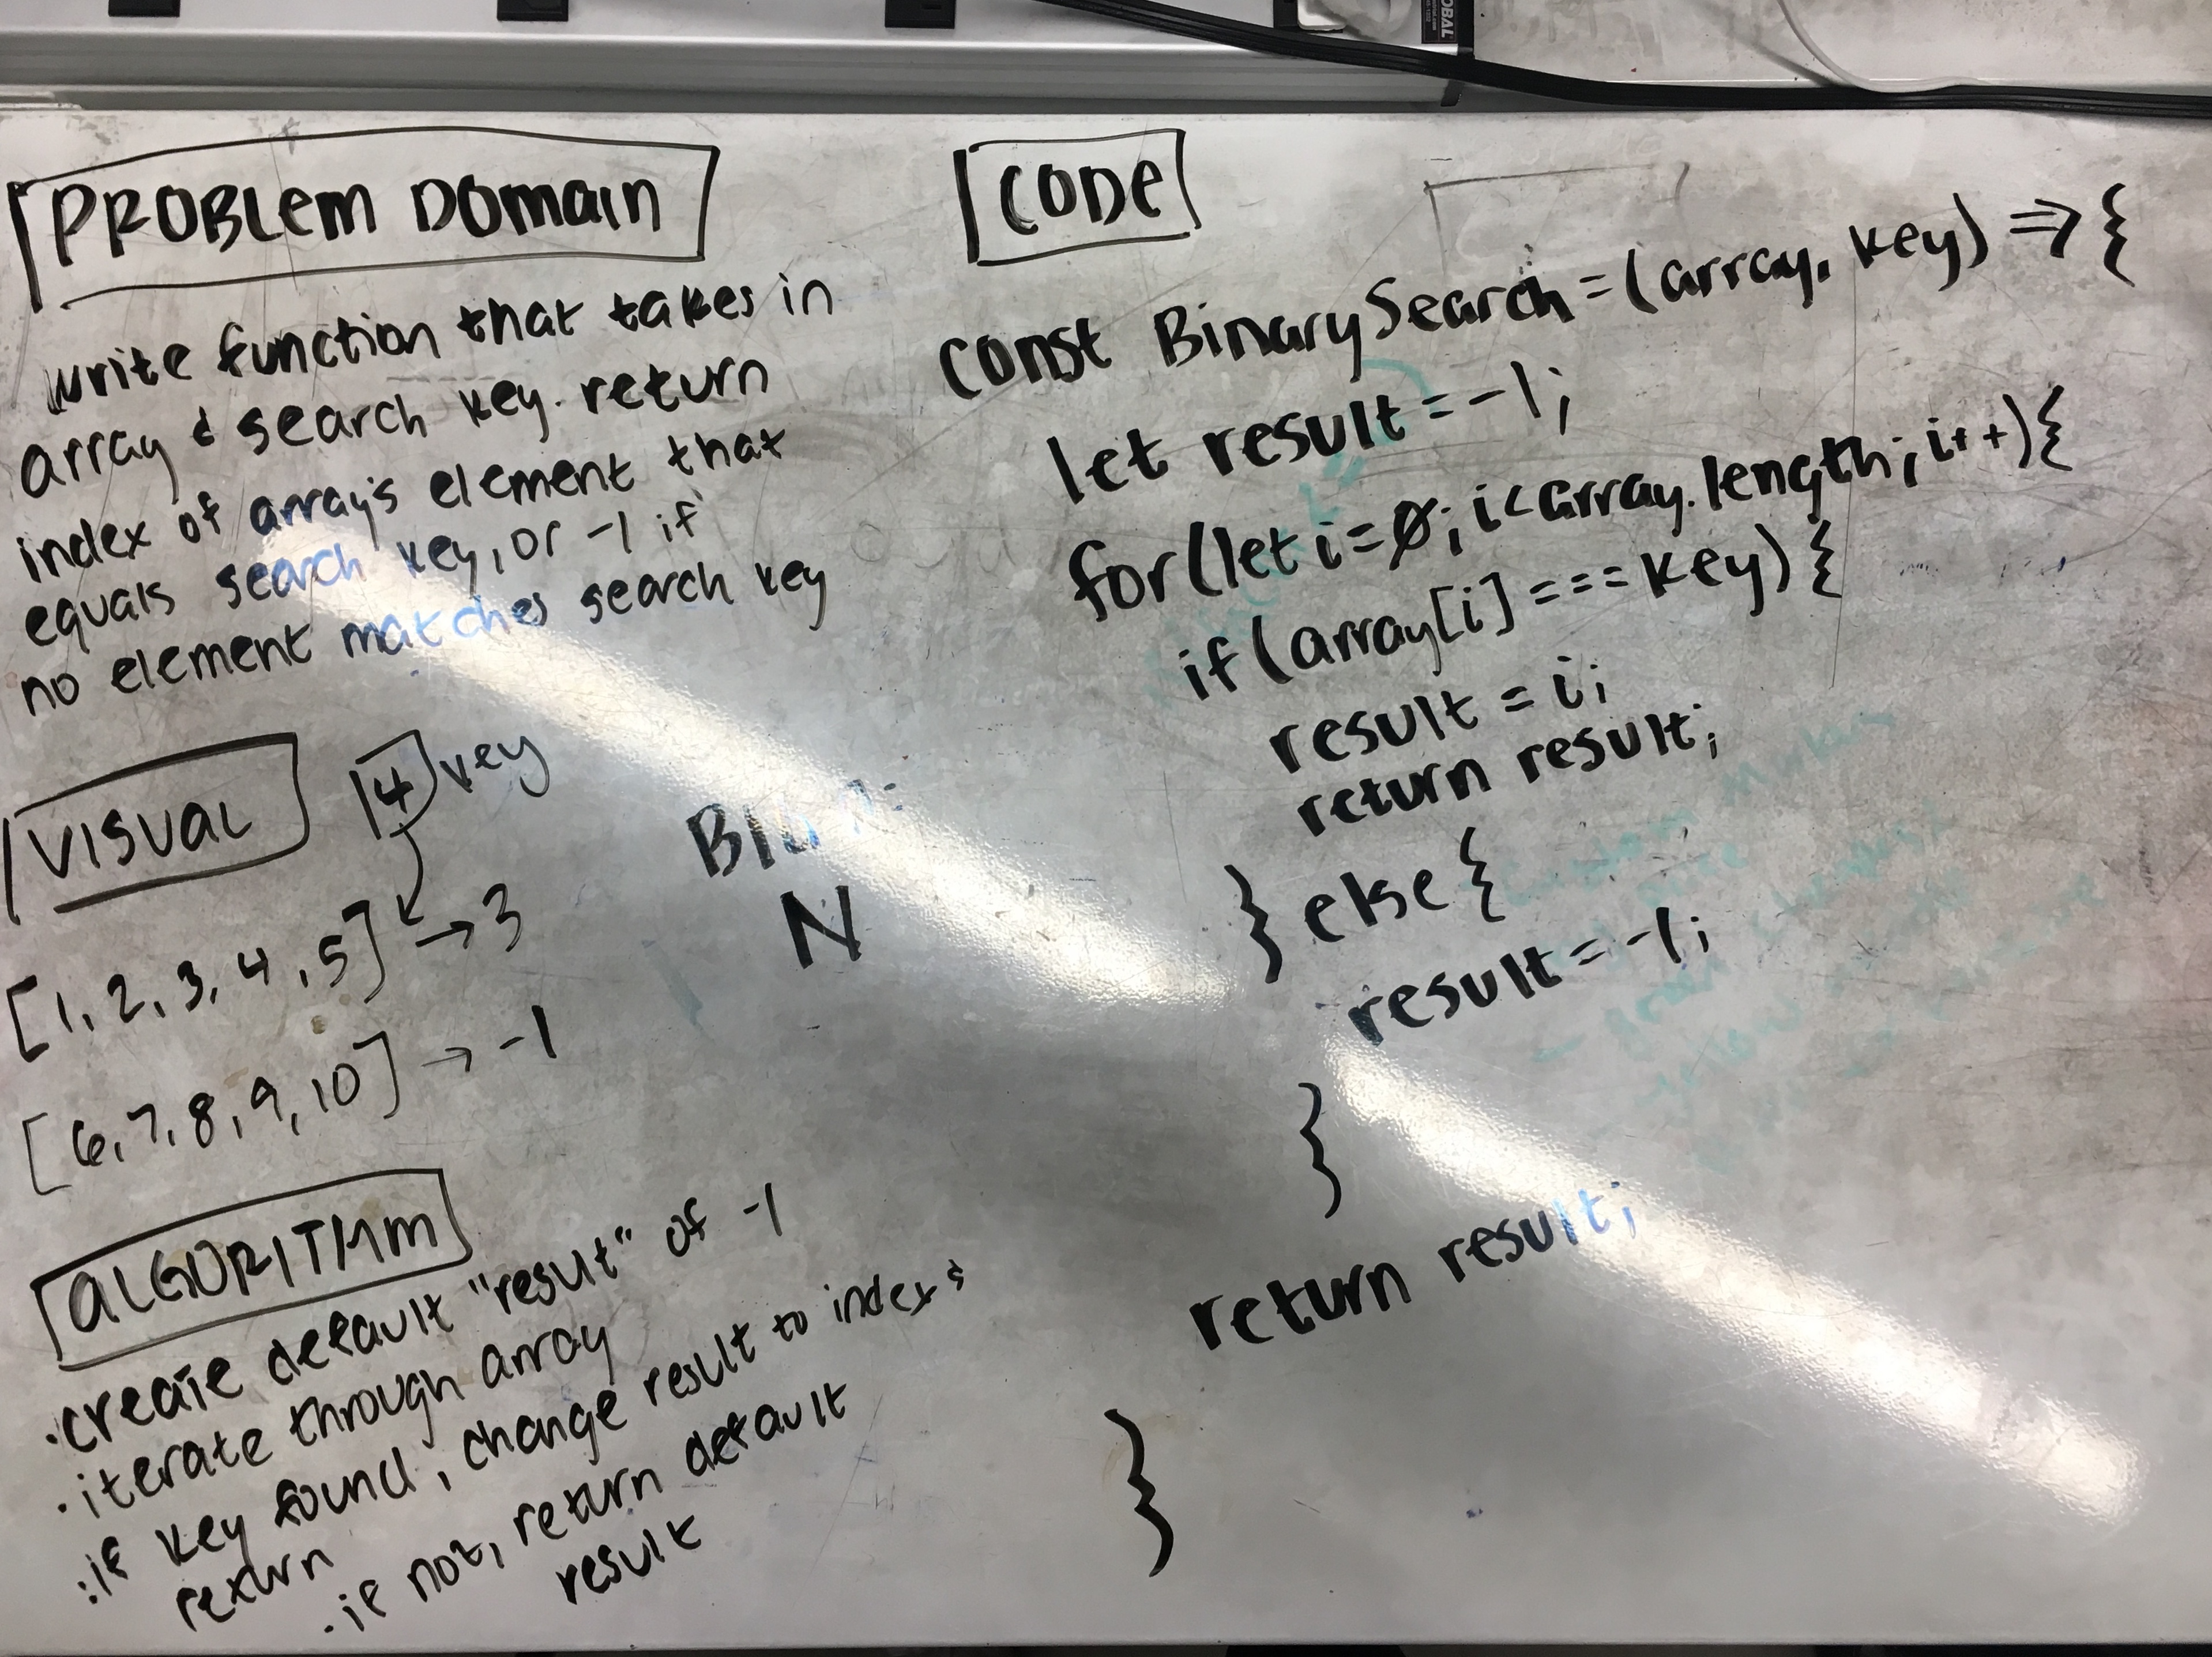 GLOBAL
PROBLEM DOMAIN
write function that takes in
array & search key. return
index of array's element that
equals search key, or -1 if
no element matches search key
VISUAL
4 key
[1, 2, 3, 4, 5] → 3
[6, 7, 8, 9, 10] → -1
BIG O:
N
ALGORITHM
·create default "result" of -1
·iterate through array
·if key found, change result to index &
return
·if not, return default
result
CODE
const BinarySearch = (array, key) => {
let result = -1;
for(let i=0; i<array.length; i++){
if (array[i] === key) {
result = i;
return result;
} else {
result = -1;
}
return result;
}